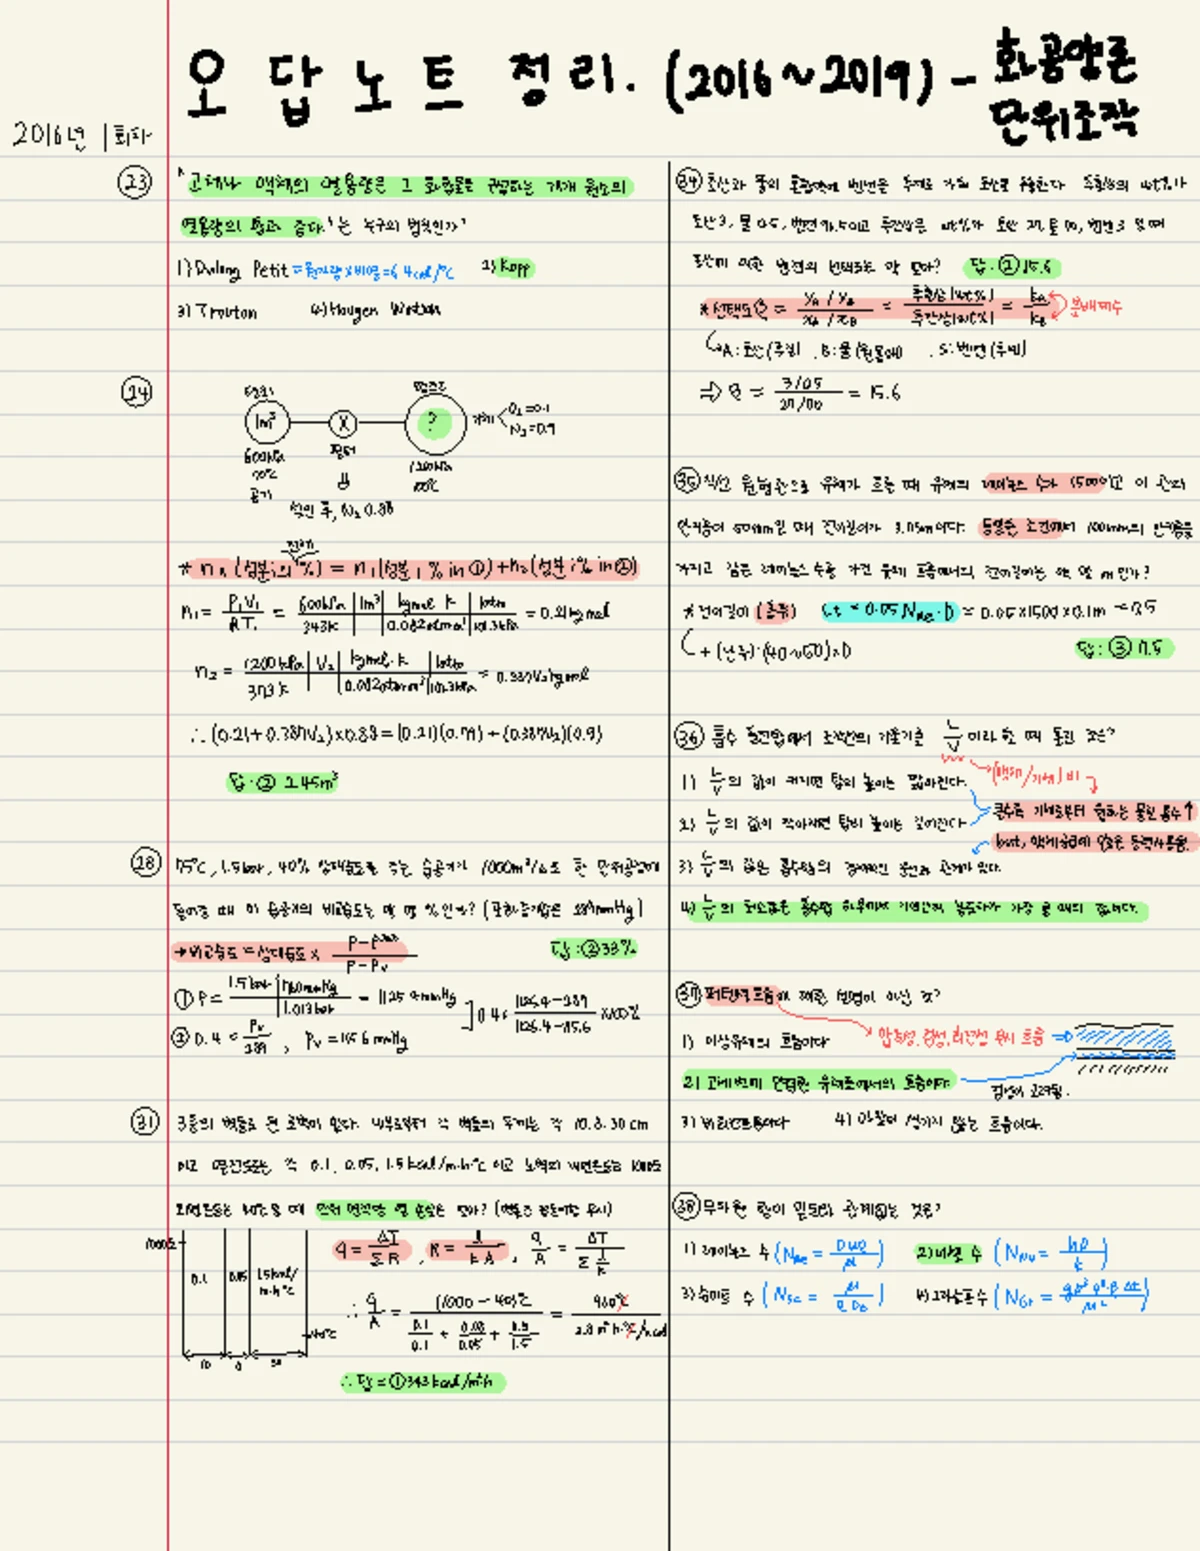 오답노트 정리. (2016~2019) - 화공양론
단위조작
2016년 1회차
㉓ "고체나 액체의 열용량은 그 화합물을 구성하는 개개 원소의
열용량의 합과 같다."는 누구의 법칙인가?
1) Dulong Petit = 원자량×비열=6.4cal/℃ 2) Kopp
3) Trouton 4) Hougen Watson
㉔
탱크1 탱크2
1m³ X ? 기체 O₂=0.1
N₂=0.9
600kPa 1200kPa
70℃ 100℃
공기
섞인 후, N₂ 0.88
n₁ = P₁V₁/RT₁ = 600kPa | 1m³ | kgmol K | 1atm / 343K | 0.082atm m³ | 101.3kPa = 0.21kgmol
n₂ = 1200kPa | V₂ | kgmol·K | 1atm / 373K | 0.082atm m³ | 101.3kPa = 0.387V₂kgmol
∴ (0.21+0.387V₂)×0.88=(0.21)(0.79)+(0.387V₂)(0.9)
답: ② 2.45m³
㉘ 75℃, 1.5bar, 40% 상대습도를 갖는 습공기가 1000m³/h로 한 단위공정에
들어갈 때 이 습공기의 비교습도는 약 몇 %인가? (포화증기압은 289mmHg)
→ 비교습도 = 상대습도 ×
답: ② 33%
① P = 1.5bar | 760mmHg / 1.013bar = 1125.4mmHg
0.4 × 1125.4-289 / 1125.4-115.6 ×100%
② 0.4 = Pv/289, Pv=115.6mmHg
㉛ 3층의 벽돌로 된 로벽이 있다. 내부로부터 각 벽돌의 두께는 각 10, 8, 30cm
이고 열전도도는 각 0.1, 0.05, 1.5kcal/m·h·℃ 이고 노벽의 내면온도는 1000℃
외면온도는 40℃일 때 단위 면적당 열 손실은 얼마? (벽돌간 접촉저항 무시)
1000℃
0.1 0.05 1.5kcal/
m·h·℃
40℃
10 8 30
q = ΔT/ΣR, R = l/kA, q/A = ΔT/Σ l/k
∴ q/A = (1000-40)℃ / 0.1/0.1 + 0.08/0.05 + 0.3/1.5 = 960℃ / 2.8m²·h·℃/kcal
∴ 답 = ① 343kcal/m²h
㉞ 초산과 물의 혼합액에 벤젠을 추제로 가해 초산을 추출한다. 추출상의 wt%가
초산3, 물 0.5, 벤젠 96.5이고 추잔상은 wt%가 초산 27, 물 70, 벤젠 3 일 때
초산에 대한 벤젠의 선택도는 약 얼마? 답: ② 15.6
* 선택도 β = yA/yB / xA/xB = 추출상(wt%) / 추잔상(wt%) = kA/kB 분배계수
A: 초산(추질), B: 물(원용매), S: 벤젠(추제)
⇒ β = 3/0.5 / 27/70 = 15.6
㉟ 직선 원형관으로 유체가 흐를 때 유체의 레이놀즈 수가 1500이고 이 관의
안지름이 50mm일 때 전이길이가 3.75m이다. 동일한 조건에서 100mm의 안지름을
가지고 같은 레이놀즈 수를 가진 유체 흐름에서의 전이길이는 약 몇 m인가?
* 전이길이 (층류) Lt = 0.05 NRe·D = 0.05×1500×0.1m = 7.5
+ (난류): (40~50)×D 답: ③ 7.5
㊱ 흡수 충전탑에서 조작선의 기울기를 L/V 이라 할 때 틀린 것은?
(액체/기체) 비
1) L/V의 값이 커지면 탑의 높이는 짧아진다.
클수록 기체로부터 원하는 물질 흡수↑
2) L/V의 값이 작아지면 탑의 높이는 길어진다
but, 액체공급에 많은 동력 사용됨.
3) L/V의 값은 흡수탑의 경제적인 운전과 관계가 있다.
㊲ 퍼텐셜 흐름에 대한 설명이 아닌 것?
1) 이상유체의 흐름이다
2) 고체벽에 인접한 유체층에서의 흐름이다.
점성이 고려됨.
3) 비회전흐름이다 4) 마찰이 생기지 않는 흐름이다.
㊳ 무차원 항이 밀도와 관계없는 것은?
1) 레이놀즈 수 (NRe = Duρ/μ) 2) 너셀 수 (NNu = hD/k)
3) 슈미트 수 (NSc = μ/ρDG) 4) 그라쇼프수 (NGr = gD³ρ²βΔt/μ²)